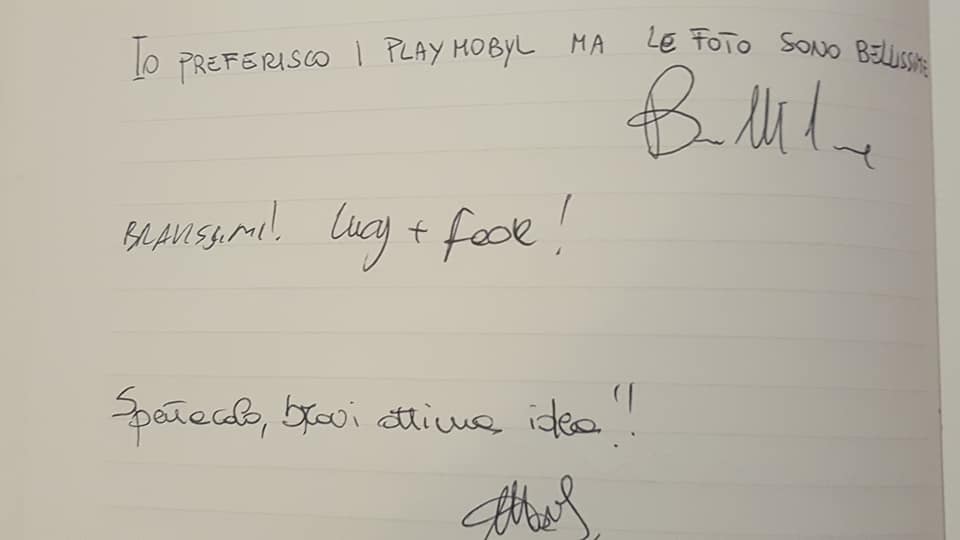 IO PREFERISCO I PLAYMOBYL MA LE FOTO SONO BELLISSIME
BRAVISSIMI! Lucy +
Spettacolo, bravi ottima idea!!